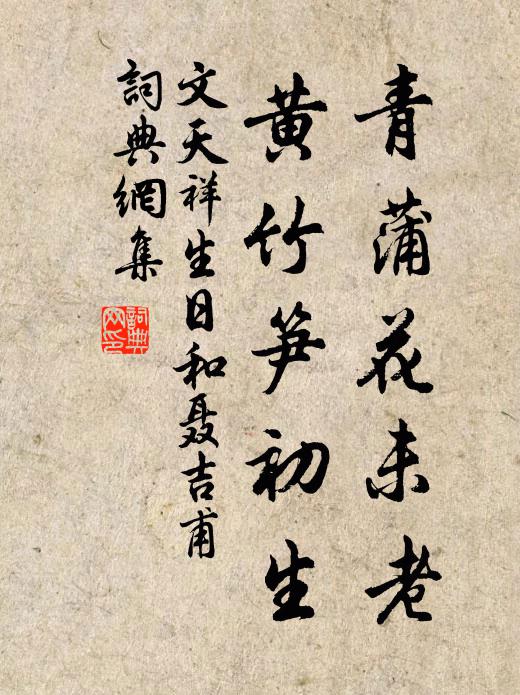 青蒲花未老
黃竹笋初生
文天祥生日和聂吉甫
詞典網集
詞典網印